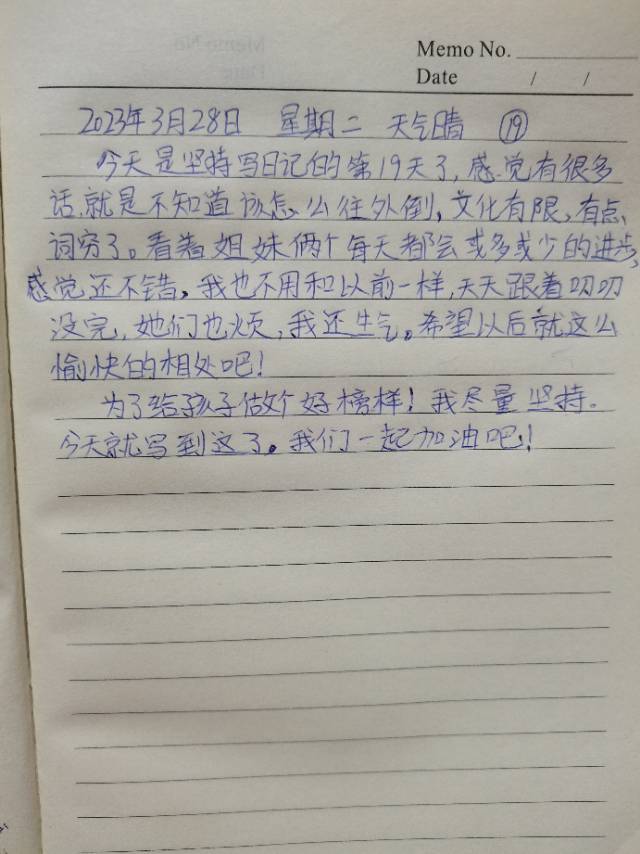 Memo No.
Date / /
2023年3月28日 星期二 天气晴 ⑲
今天是坚持写日记的第19天了,感觉有很多
话,就是不知道该怎么往外倒,文化有限,有点
词穷了。看着姐妹俩个每天都会或多或少的进步,
感觉还不错,我也不用和以前一样,天天跟着叨叨
没完,她们也烦,我还生气。希望以后就这么
愉快的相处吧!
为了给孩子做个好榜样!我尽量坚持。
今天就写到这了。我们一起加油吧!